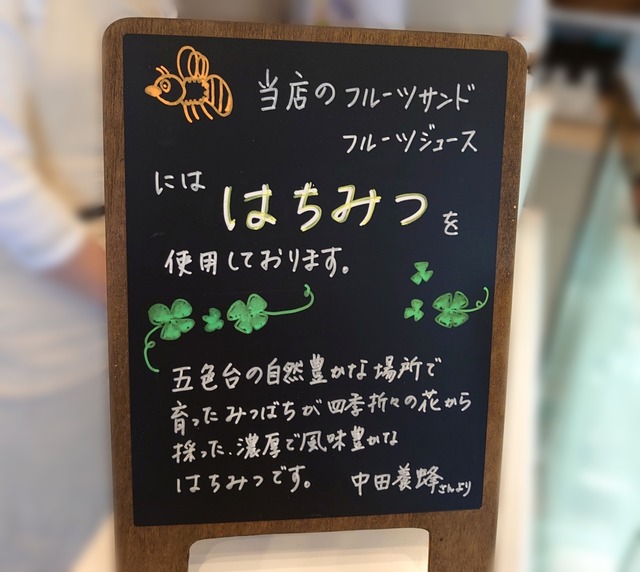 当店のフルーツサンド
フルーツジュース
には
はちみつを
使用しております。
五色台の自然豊かな場所で
育ったみつばちが四季折々の花から
採った、濃厚で風味豊かな
はちみつです。 中田養蜂さんより